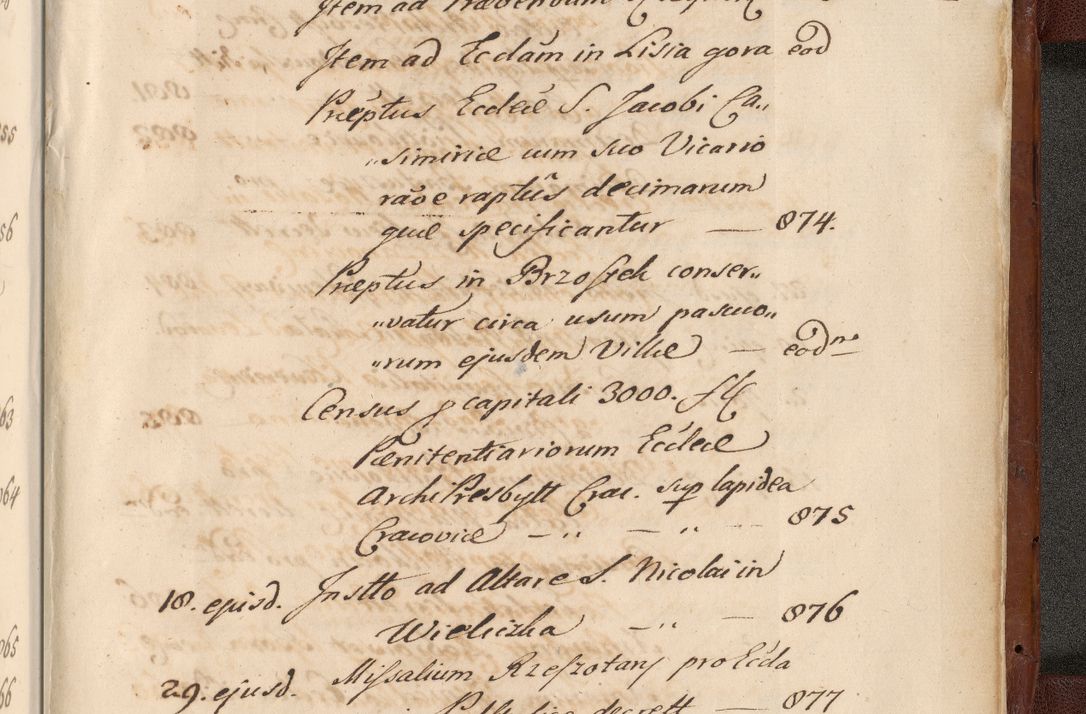 Item ad
Item ad Ecclãm in Lisia gora eod
Præptus Ecclæ S. Jacobi Ca„
„simiriæ cum suo Vicario
rãoe raptus decimarum
quæ specificantur — 874.
Præptus in Brzosgek conser„
„vatur circa usum pascuo„
„rum ejusdem Villæ — eodne
Census p capitali 3000. fl
Pœnitentiariorum Ecclæ
ArchiPresbytt Crac. sup lapidea
Cracoviæ – „ — „ — 875
18. ejusd. Instto ad Altare S. Nicolai in
Wieliczka – „ — 876
29. ejusd. Missalium Rzeszotary pro Eccla
decrett — 877
55
56
63
064
065
66